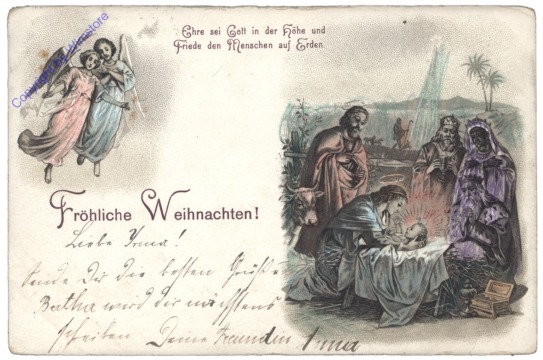 Copyright by Ullistore
Ehre sei Gott in der Höhe und
Friede den Menschen auf Erden.
Fröhliche Weihnachten!
Liebe Irma!
Sende Dir die besten Grüße
Bertha wird dir nächstens
schreiben Deine Freundin Irma